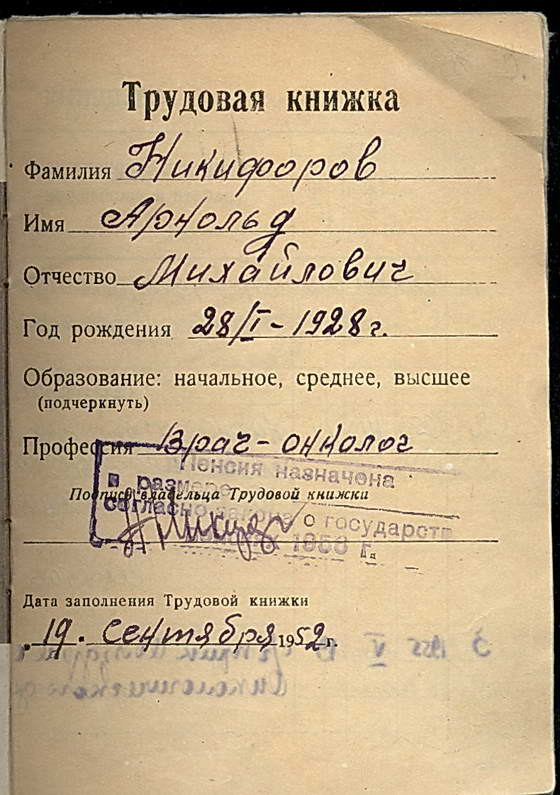 Трудовая книжка
Фамилия Никифоров
Имя Арнольд
Отчество Михайлович
Год рождения 28/I - 1928 г.
Образование: начальное, среднее, высшее
(подчеркнуть)
Профессия Врач - онколог
Пенсия назначена
в размере
Подпись владельца Трудовой книжки
согласно закона о государств
1956 г.
Дата заполнения Трудовой книжки
19. сентября 1952 г.